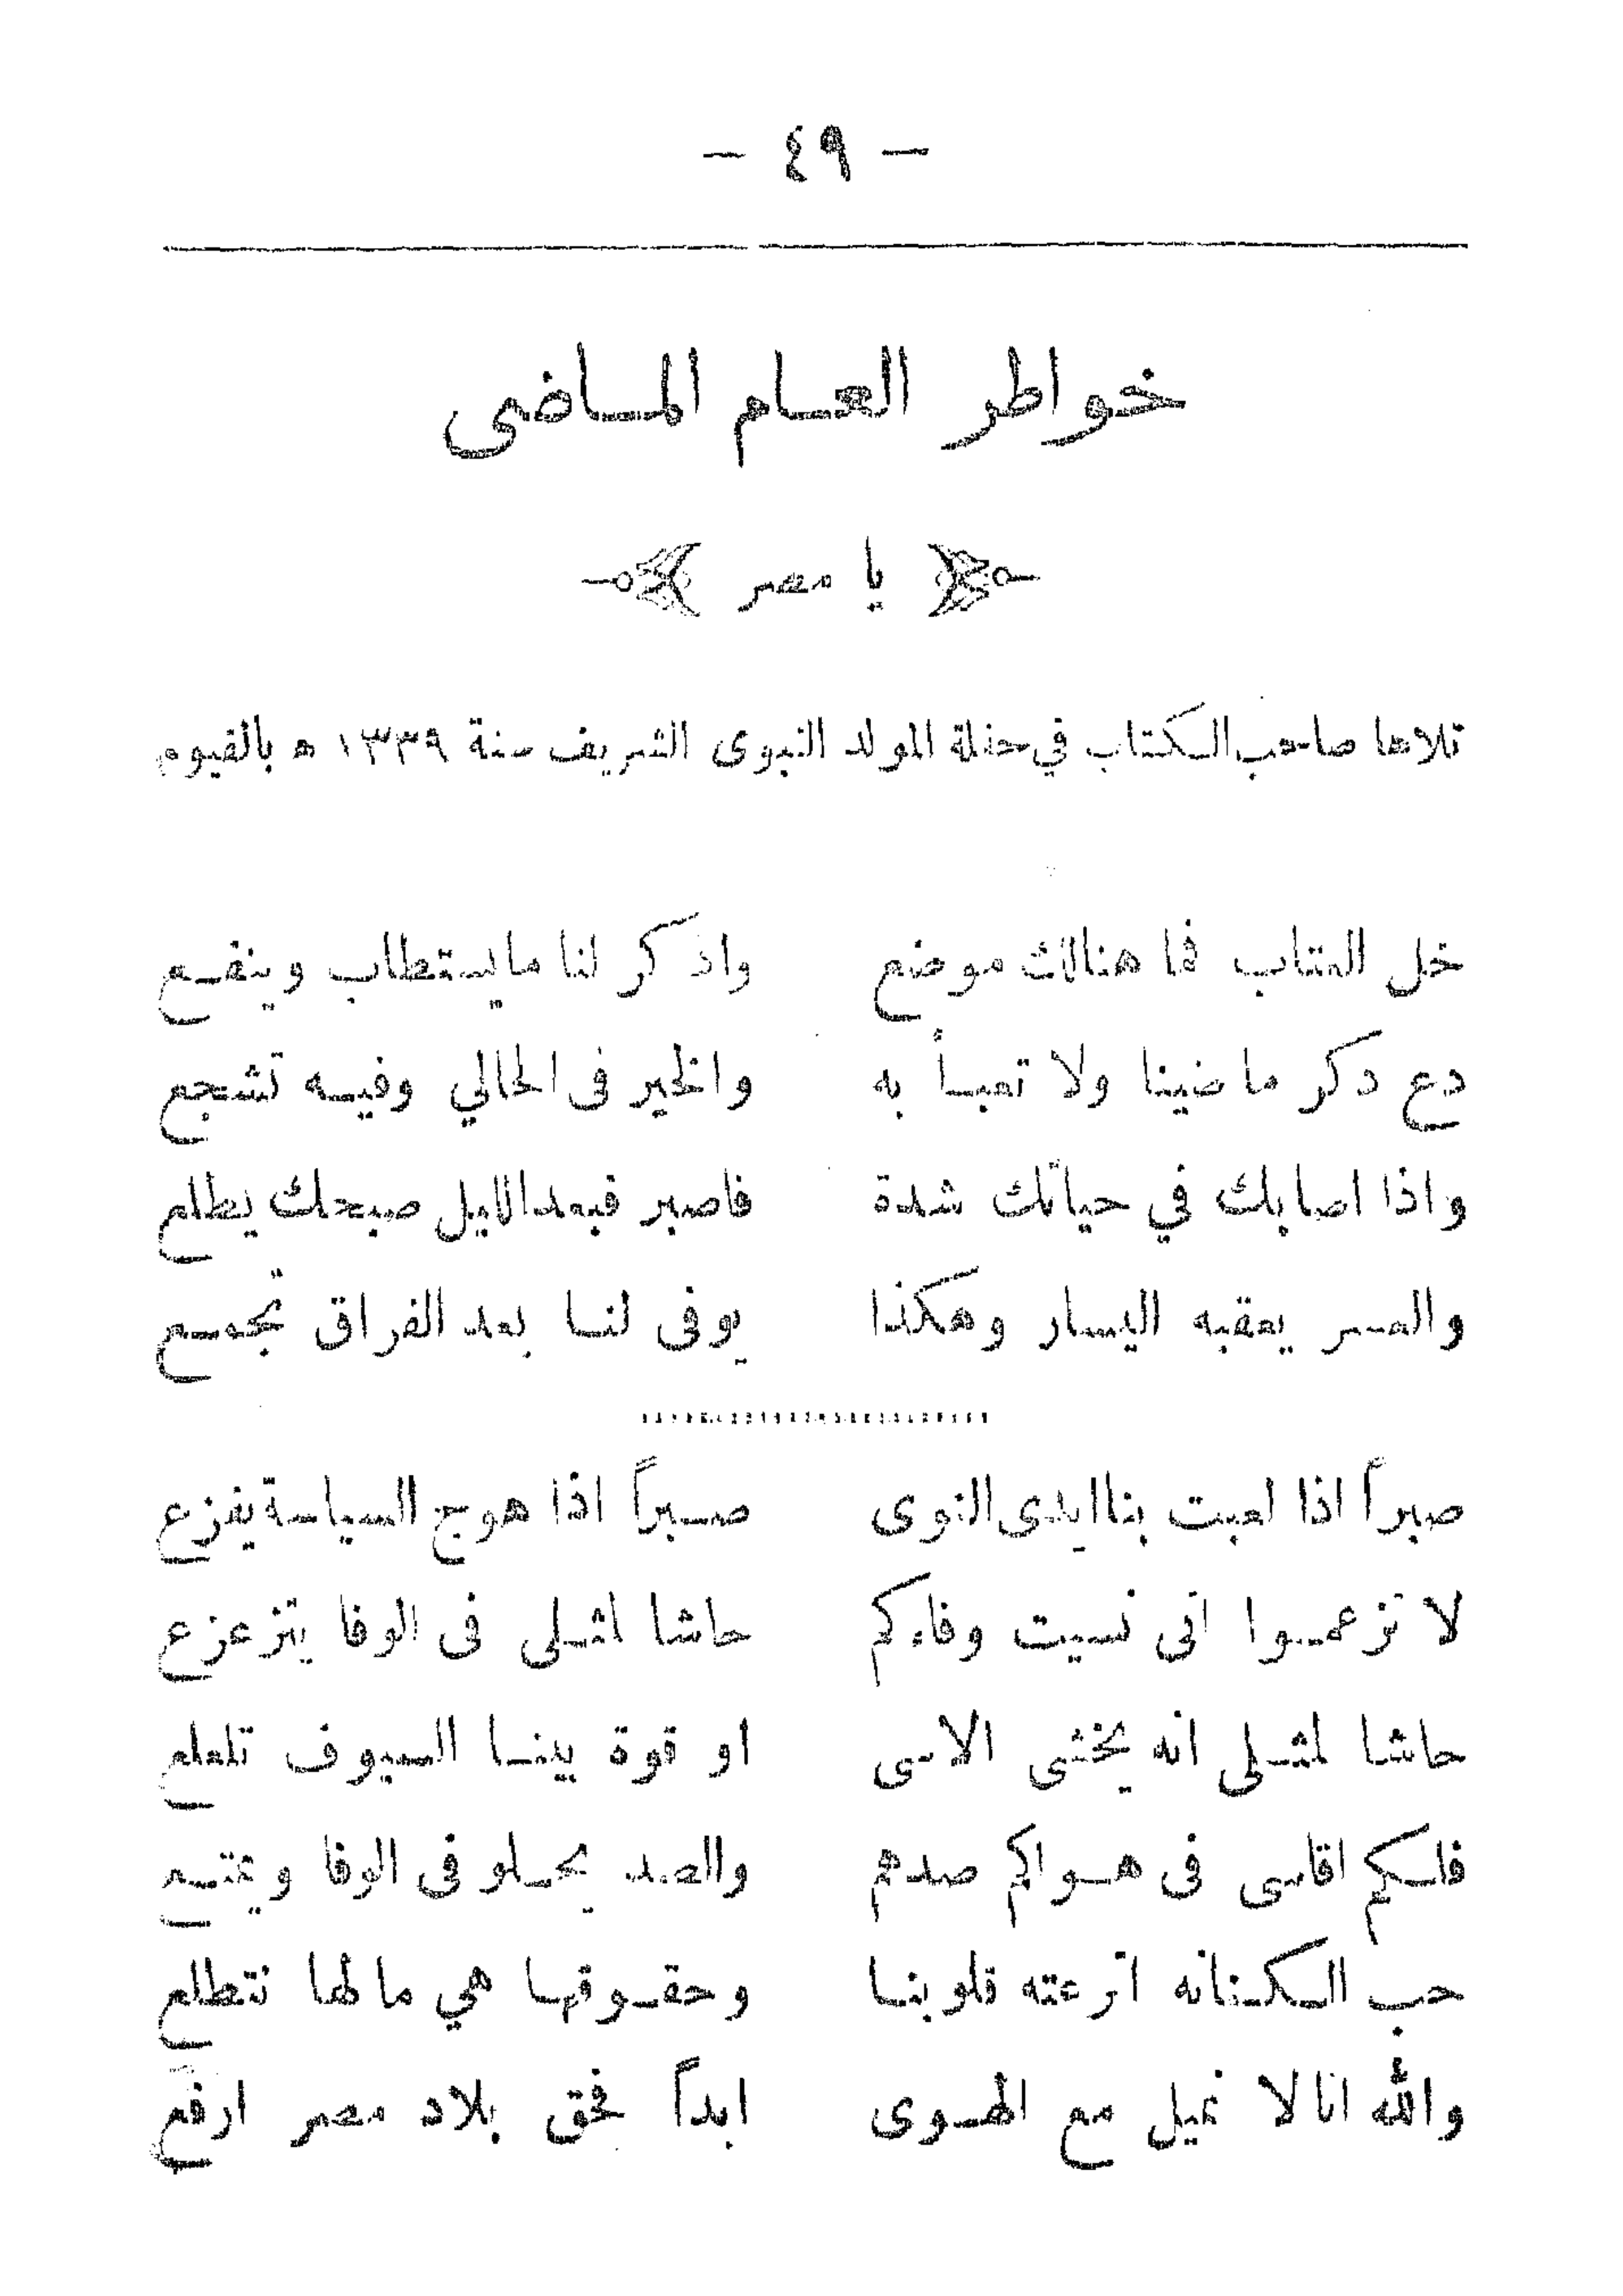 - ٤٩ -
خواطر العام الماضى
يا مصر
تلاها صاحب الكتاب في حفلة المولد النبوى الشريف سنة ١٣٣٩ ه بالفيوم
خل العتاب فما هنالك موضع واذكر لنا ما يستطاب وينفع
دع ذكر ماضينا ولا تعبأ به والخير فى الحالي وفيه تشجع
واذا اصابك في حياتك شدة فاصبر فبعد الليل صبحك يطلع
والعسر يعقبه اليسار وهكذا يوفى لنا بعد الفراق تجمع
صبراً اذا لعبت بنا ايدى النوى صبراً اذا هوج السياسة يفزع
لا تزعموا انى نسيت وفاءكم حاشا لمثلى فى الوفا يتزعزع
حاشا لمثلى انه يخشى الاسى او قوة بينا السيوف تلعلع
فلكم اقاسى فى هواكم صدهم والصد يحلو فى الوفا ويمتع
حب الكنانه اترعته قلوبنا وحقوقها هي مالها نتطلع
والله انا لا نميل مع الهوى ابداً فحق بلاد مصر ارفع